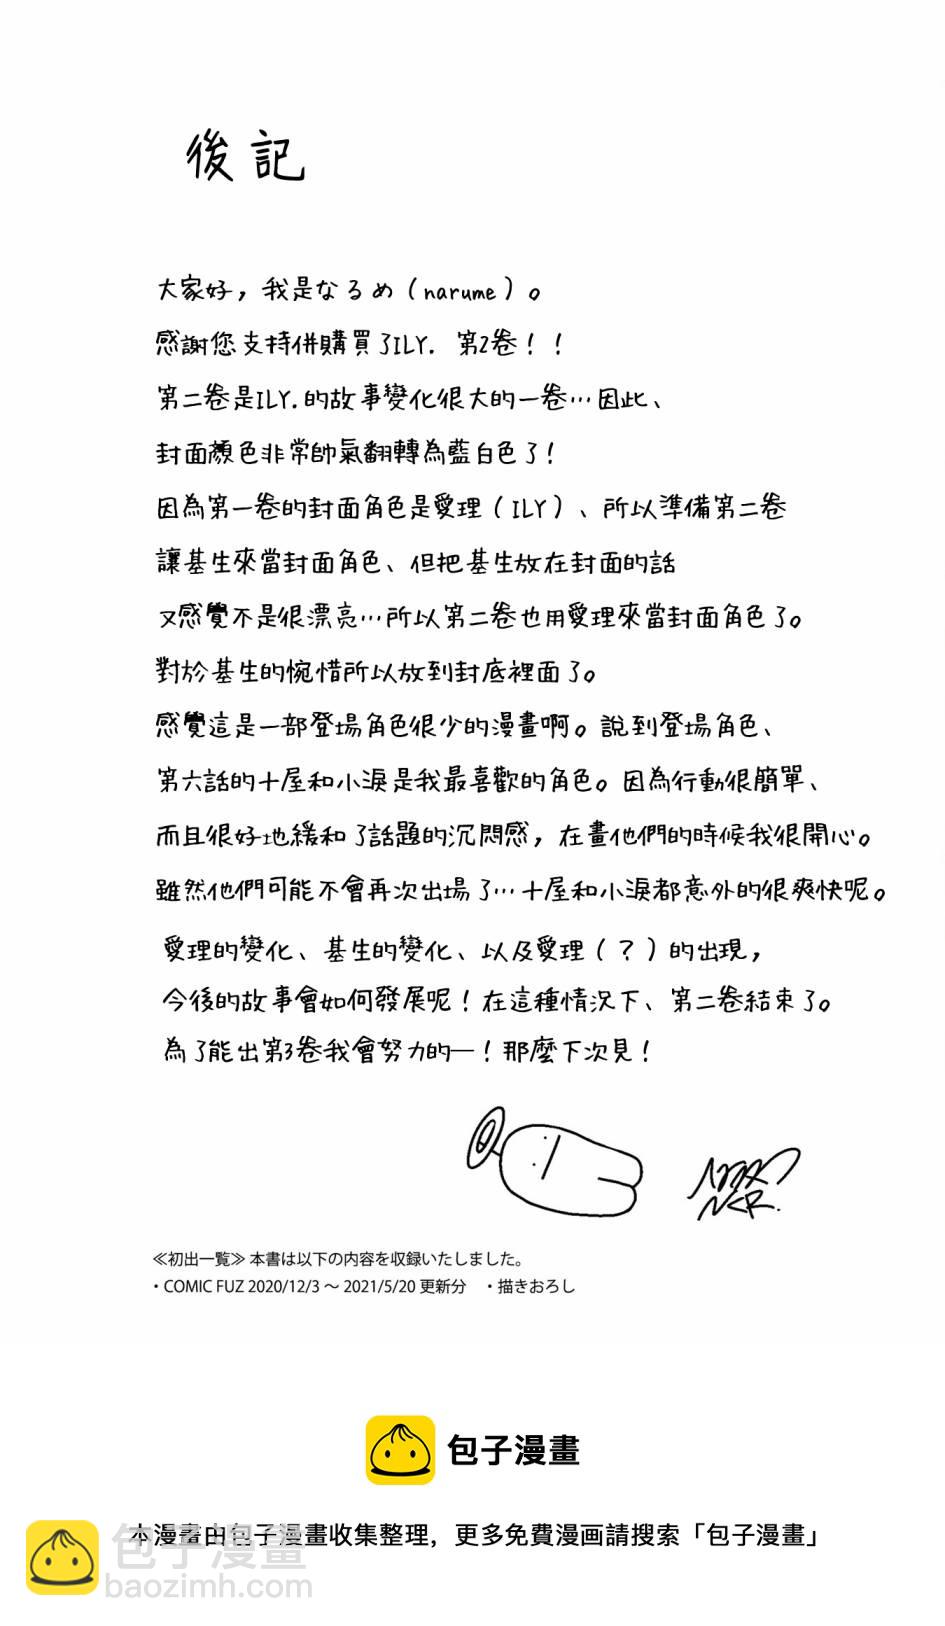 後記
大家好，我是なるめ（narume）。
感謝您支持併購買了ILY. 第2卷！！
第二卷是ILY.的故事變化很大的一卷…因此、
封面顏色非常帥氣翻轉為藍白色了！
因為第一卷的封面角色是愛理（ILY）、所以準備第二卷
讓基生來當封面角色、但把基生放在封面的話
又感覺不是很漂亮…所以第二卷也用愛理來當封面角色了。
對於基生的惋惜所以放到封底裡面了。
感覺這是一部登場角色很少的漫畫啊。說到登場角色、
第六話的十屋和小淚是我最喜歡的角色。因為行動很簡單、
而且很好地緩和了話題的沉悶感，在畫他們的時候我很開心。
雖然他們可能不會再次出場了…十屋和小淚都意外的很爽快呢。
愛理的變化、基生的變化、以及愛理（？）的出現，
今後的故事會如何發展呢！在這種情況下、第二卷結束了。
為了能出第3卷我會努力的—！那麼下次見！
≪初出一覧≫本書は以下の内容を収録いたしました。
・COMIC FUZ 2020/12/3 〜 2021/5/20 更新分　・描きおろし
包子漫畫
本漫畫由包子漫畫收集整理，更多免費漫画請搜索「包子漫畫」
包子漫畫
baozimh.com